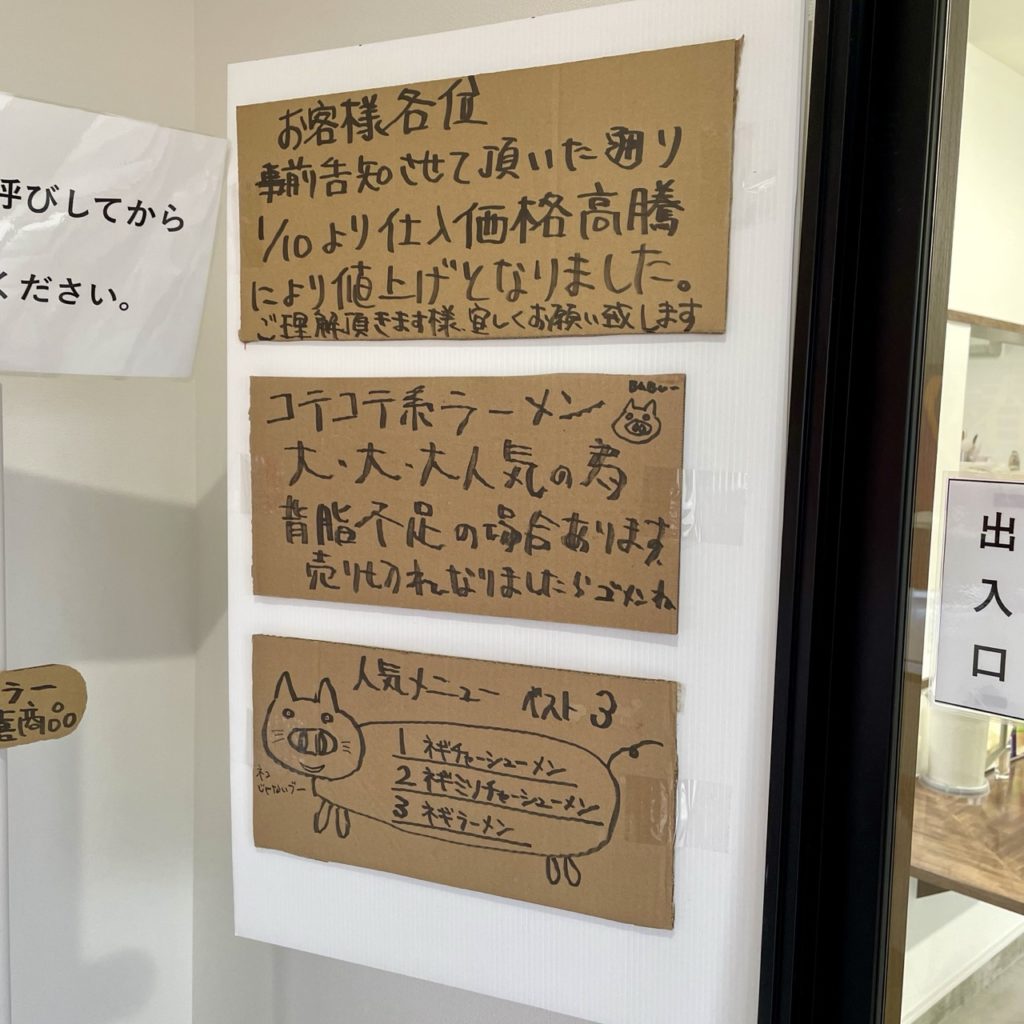 呼びしてから
ください。
お客様各位
事前告知させて頂いた通り
1/10より仕入価格高騰
により値上げとなりました。
ご理解頂きます様、宜しくお願い致します
コテコテ系ラーメン
大・大・大人気の為
背脂不足の場合あります
売り切れなりましたらゴメンね
人気メニュー ベスト3
1 ネギチャーシューメン
2 ネギミソチャーシューメン
3 ネギラーメン
ネコ
じゃないブー
ラー。
商品
出入口